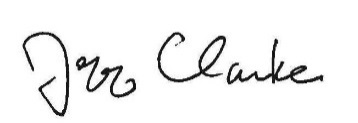 Jeff Clarke